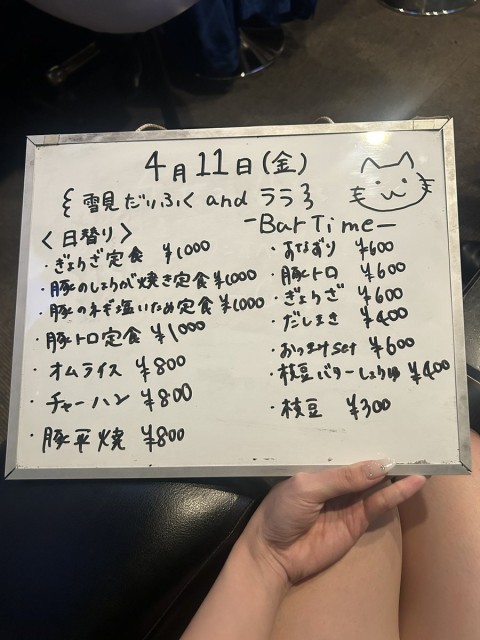 4月11日(金)
{ 雪見だいふく and ララ }
〈日替り〉
・ぎょうざ定食 ¥1000
・豚のしょうが焼き定食 ¥1000
・豚のネギ塩いため定食 ¥1000
・豚トロ定食 ¥1000
・オムライス ¥800
・チャーハン ¥800
・豚平焼 ¥800
-Bar Time-
・さなずり ¥600
・豚トロ ¥600
・ぎょうざ ¥600
・だしまき ¥400
・おつまみset ¥600
・枝豆バターしょうゆ ¥400
・枝豆 ¥300